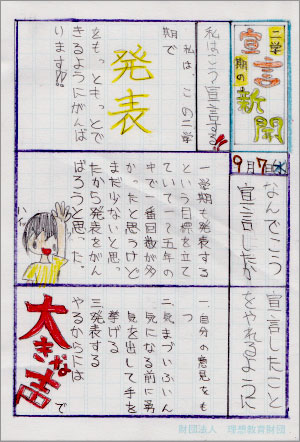 二学期の
宣言新聞
9月7日(水)
私はこう宣言する!!
私はこの二学
期で
発表
をもっともっとで
きるようにがんば
ります!!
なんでこう
宣言したか。
一学期も発表する
という目標を立て
ていて一〜五年の
中で一番回数が多
かったと思うけど
まだ少ないと思っ
たから発表をがん
ばろうと思った。
宣言したこと
をやれるように
一自分の意見をも
つ
二気まづいふいん
気になる前に勇
気を出して手を
挙げる
三発表する
やるからには
大きな声で
財団法人 理想教育財団